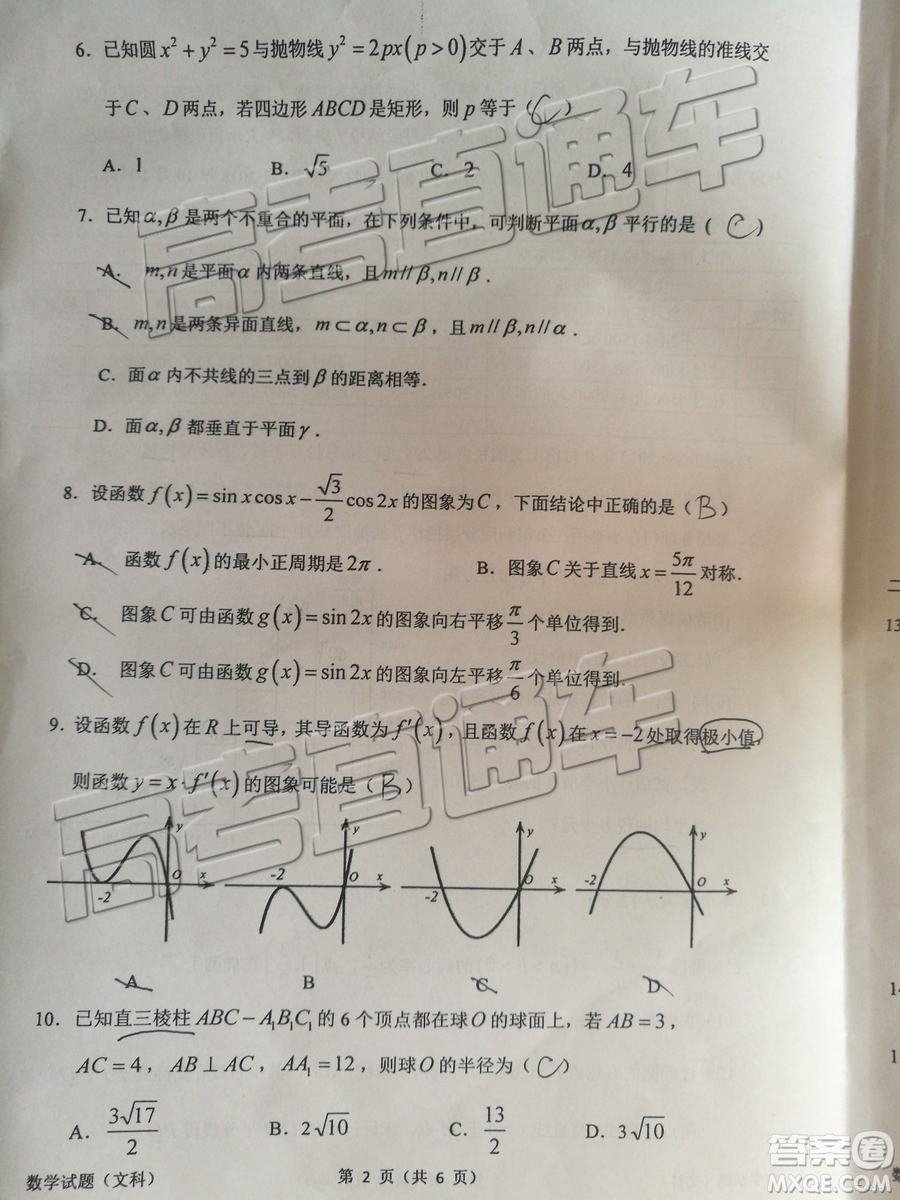 6．已知圆 x² + y² = 5 与抛物线 y² = 2px ( p > 0 ) 交于 A 、 B 两点，与抛物线的准线交
于 C 、 D 两点，若四边形 ABCD 是矩形，则 p 等于（ C ）
A．1 B．√5 C．2 D．4
7．已知 α, β 是两个不重合的平面，在下列条件中，可判断平面 α, β 平行的是（ C ）
A． m, n 是平面 α 内两条直线，且 m // β, n // β ．
B．m, n 是两条异面直线，m ⊂ α, n ⊂ β ，且 m // β, n // α ．
C．面 α 内不共线的三点到 β 的距离相等．
D．面 α, β 都垂直于平面 γ ．
8．设函数 f (x) = sin x cos x − √3/2 cos 2x 的图象为 C ，下面结论中正确的是（ B ）
A． 函数 f (x) 的最小正周期是 2π ． B．图象 C 关于直线 x = 5π/12 对称．
C． 图象 C 可由函数 g (x) = sin 2x 的图象向右平移 π/3 个单位得到．
D．图象 C 可由函数 g (x) = sin 2x 的图象向左平移 π/6 个单位得到．
9．设函数 f (x) 在 R 上可导，其导函数为 f′(x)，且函数 f (x) 在 x = −2 处取得极小值，
则函数 y = x · f′(x) 的图象可能是（ B ）
y y y y
-2 O x -2 O x -2 O x -2 O x
A B C D
10．已知直三棱柱 ABC − A₁B₁C₁ 的 6 个顶点都在球 O 的球面上，若 AB = 3 ，
AC = 4 ， AB ⊥ AC ， AA₁ = 12 ，则球 O 的半径为（ C ）
A．3√17/2 B．2√10 C．13/2 D．3√10
数学试题（文科） 第 2 页（共 6 页）
高考直通车
高考直通车
二
13
14
答案卷
MXQE.COM